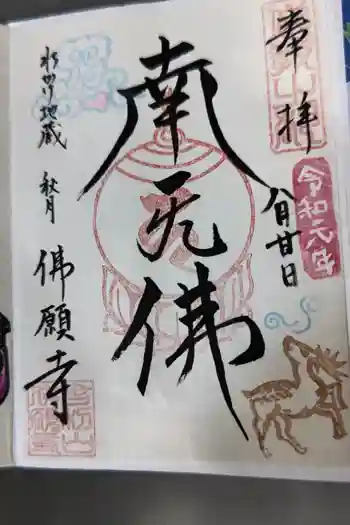 奉拝
令和元年
八月廿日
南无佛
水かけ地蔵 秋月
佛願寺